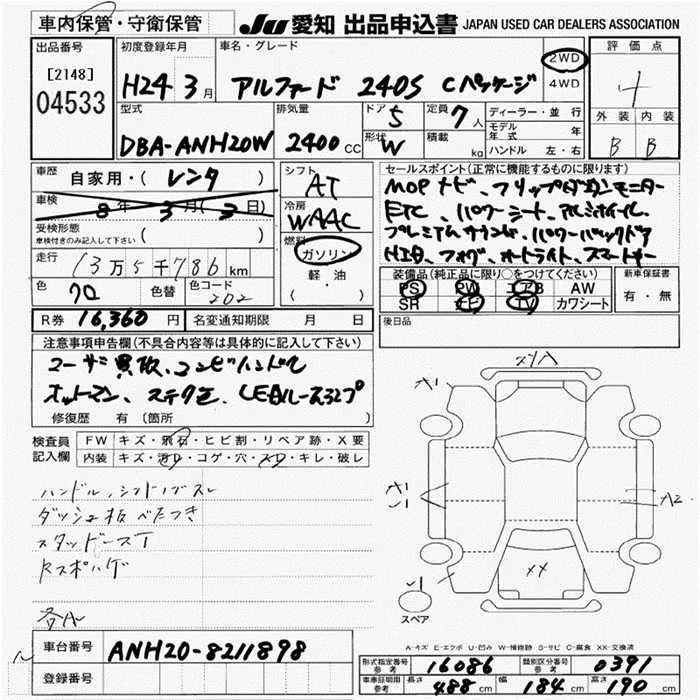 車内保管・守衛保管
JU 愛知 出品申込書 JAPAN USED CAR DEALERS ASSOCIATION
出品番号
[2148]
04533
初度登録年月
H24 3月
車名・グレード
アルファード 240S Cパッケージ
2WD
4WD
評価点
4
外装 内装
B B
型式
DBA-ANH20W
排気量
2400cc
ドア 5
形状 W
定員 7人
積載 kg
ディーラー・並行
モデル年式 年
ハンドル 左・右
車歴 自家用・(レンタ)
車検 8年 3月(3日)
受検形態
車検付きのみ記入して下さい ( )
走行 13万5千786km
色 クロ
色替
色コード 202
シフト AT
冷房 WAAC
燃料 ガソリン
軽油
( ・ )
セールスポイント(正常に機能するものに限ります)
MOPナビ、フリップダウンモニター
ETC、パワーシート、アルミホイール、
プレミアムサウンド、パワーバックドア
HID、フォグ、オートライト、スマートキー
装備品(純正品に限り○をつけてください)
PS PW エアB AW
SR ナビ TV カワシート
新車保証書
有・無
R券 16,360円
名変通知期限 月 日
後日品
注意事項申告欄(不具合内容等は具体的に記入して下さい)
ユーザー買取、コンビハンドル
オットマン、ステクミ、LEDルームランプ
修復歴 有(箇所 )
検査員記入欄
FW キズ・飛石・ヒビ割・リペア跡・X要
内装 キズ・汚れ・コゲ・穴・スレ・キレ・破レ
ハンドル、シフトノブスレ
ダッシュ板べたつき
スタッドレスT
各A
A1
A1
A2
XX
スペア
A-キズ E-エクボ U-凹み W-補修跡 S-サビ C-腐食 XX-交換済
車台番号 ANH20-8211898
登録番号
形式指定番号 参考 16086
類別区分番号 参考 0391
車庫証明用 参考 長さ 488cm 幅 184cm 高さ 190cm